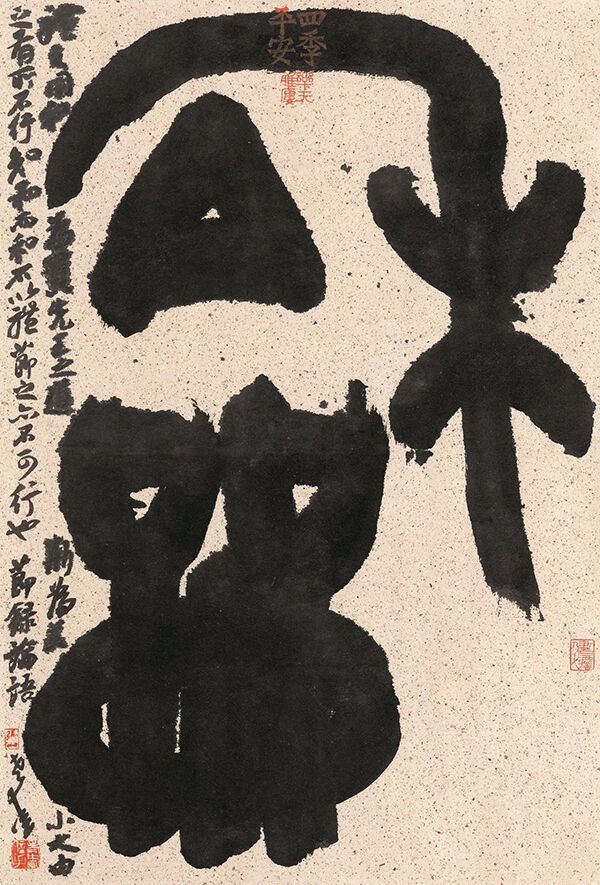 龢
四季平安
禮之用和為貴先王之道斯為美小大由
之有所不行知和而和不以禮節之亦不可行也 節錄論語